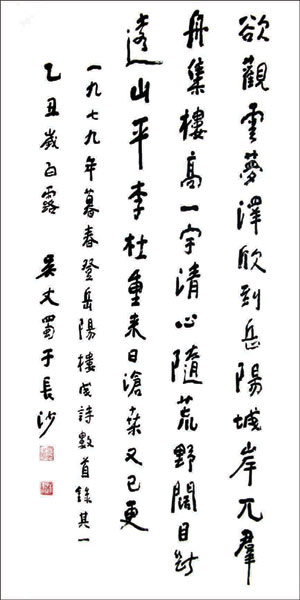 欲觀雲夢澤欣到岳陽城岸兀羣
舟集樓高一宇清心隨荒野闊目斷
遠山平李杜重来日滄桑又已更
一九七九年暮春登岳陽樓成詩數首錄其一
乙丑歲白露 吴丈蜀于長沙